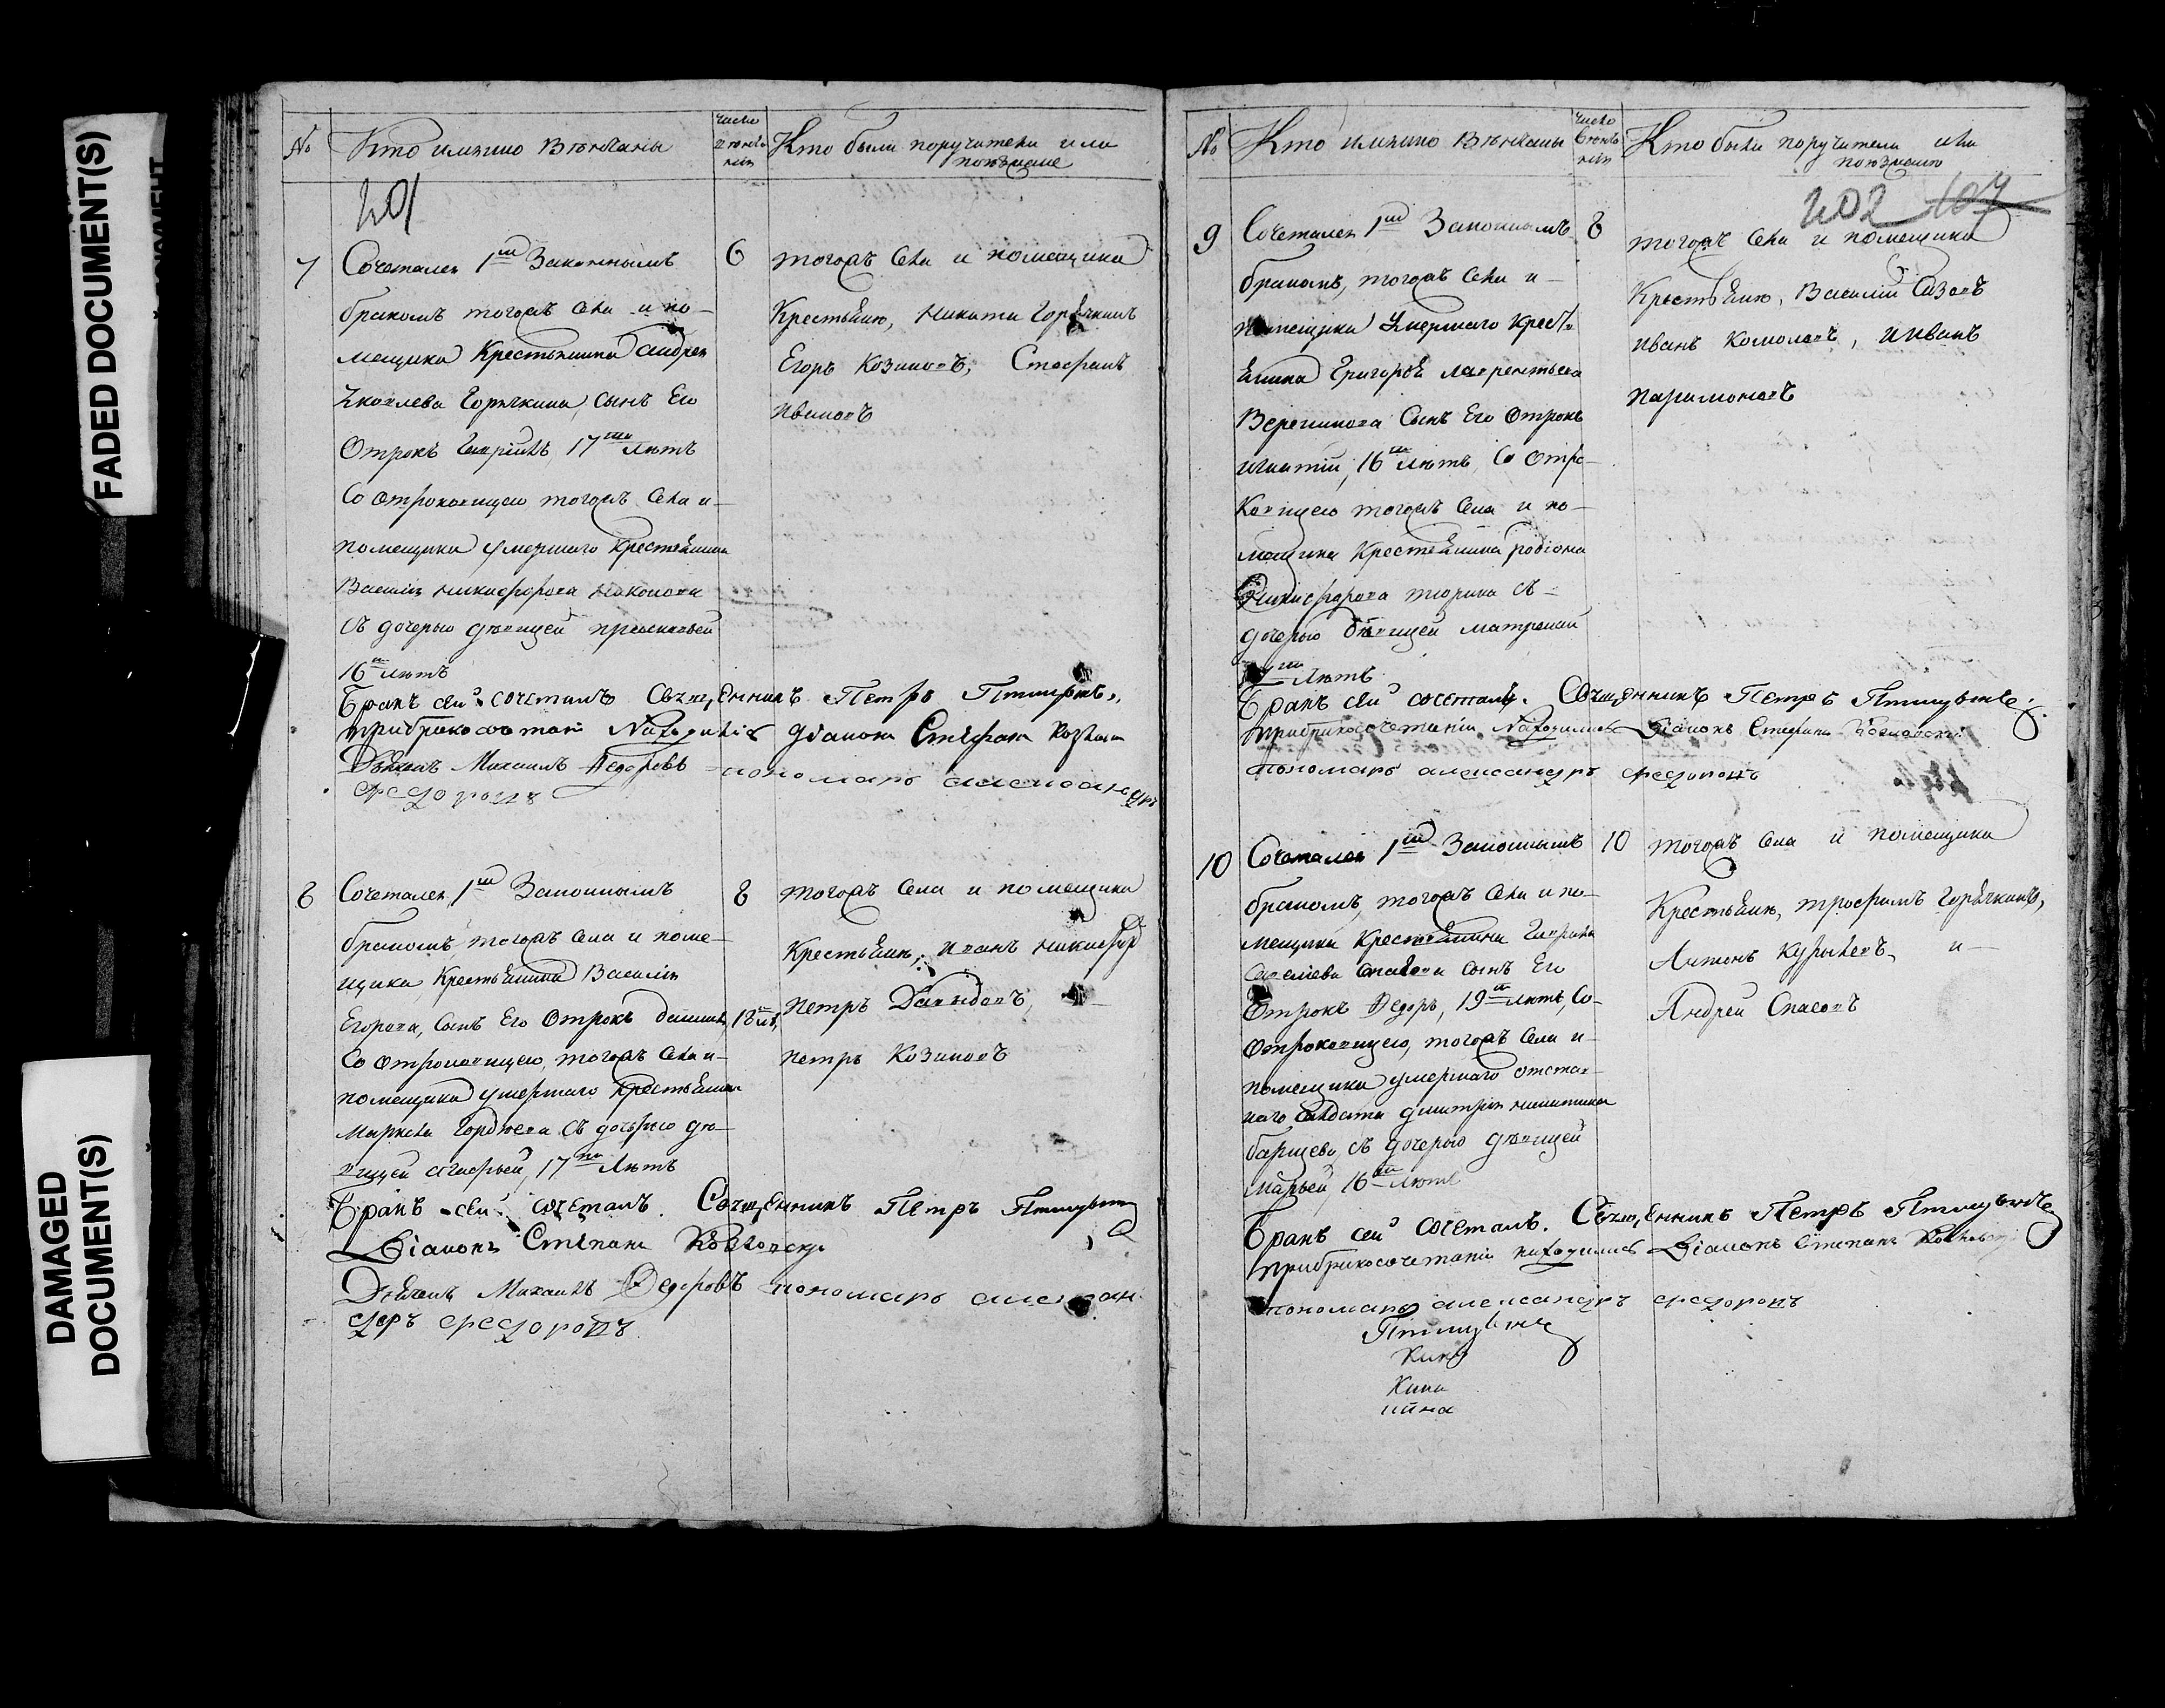 FADED DOCUMENT(S)
DAMAGED
DOCUMENT(S)
№
Кто имянно Венчаны
число
венча
нія
Кто были поручители или
поезжане
201
7
Сочетался 1м Законнымъ
бракомъ тогожъ села и по-
мещика Крестьянина андрея
Яковлева Горячкина, сынъ Его
Отрокъ Гаврiилъ, 17ти летъ
Со отроковицею тогожъ села и-
помещика умершаго крестьянина
Василя никифорова
съ дочерью девицей
16ти летъ
6
тогожъ села и помещика
Крестьяня, никита Горячкинъ
Егоръ Козиновъ, Стефанъ
ивановъ
Бракъ сей сочеталъ Священникъ Петръ
прибракосочетанi Находился діаконъ Стефанъ
Дьячекъ Михаилъ Федоровъ пономарь александръ
федоровъ
8
Сочетался 1м Законнымъ
бракомъ, тогожъ села и поме-
щика, Крестьянина Василя
Егорова, сынъ Его Отрокъ 18ти ле,
Со отроковицею, тогожъ села и-
помещика умершаго крестьянина
съ дочерью де-
вицей агафьей, 17ти летъ
8
тогожъ села и помещика
Крестьяня, иванъ никифор
Петръ Давыдовъ,
петръ Козиновъ
Бракъ сей сочеталъ. Священникъ Петръ
Діаконъ Степанъ
Дьячекъ Михаилъ Федоровъ пономарь алексан
деръ федоровъ
№
Кто имянно Венчаны
число
венча
нія
Кто были поручители или
поезжаня
202 107
9
Сочетался 1м Законнымъ
бракомъ, тогожъ села и-
помещика умершаго крест
янина Григорья лаврентьева
сынъ Его Отрокъ
игнатiи, 16ти летъ, Со отро-
ковицею тогожъ села и по-
мещика крестьянина родiона
никифорова съ-
дочерью девицей матреной
летъ
8
тогожъ села и помещика
Крестьяня, Василiи Сазовъ
иванъ и иванъ
парамоновъ
Бракъ сей сочеталъ. Священникъ Петръ
прибракосочетанiи Находился Діаконъ Стефанъ
пономарь александръ федоровъ
10
Сочетался 1м Законнымъ
бракомъ, тогожъ села и по-
мещика крестьянина Гаврила
сынъ Его
Отрокъ Федоръ, 19ти летъ, Со-
отроковицею, тогожъ села и-
помещика умершаго отстав-
наго солдата дмитрiя никитина
съ дочерью девицей
марьей, 16ти летъ
10
тогожъ села и помещика
Крестьяня, трофимъ горячкинъ,
Антонъ и-
Андрей Спасовъ
Бракъ сей сочеталъ. Священникъ Петръ
прибракосочетанiи находился Діаконъ Степанъ
пономарь александръ федоровъ